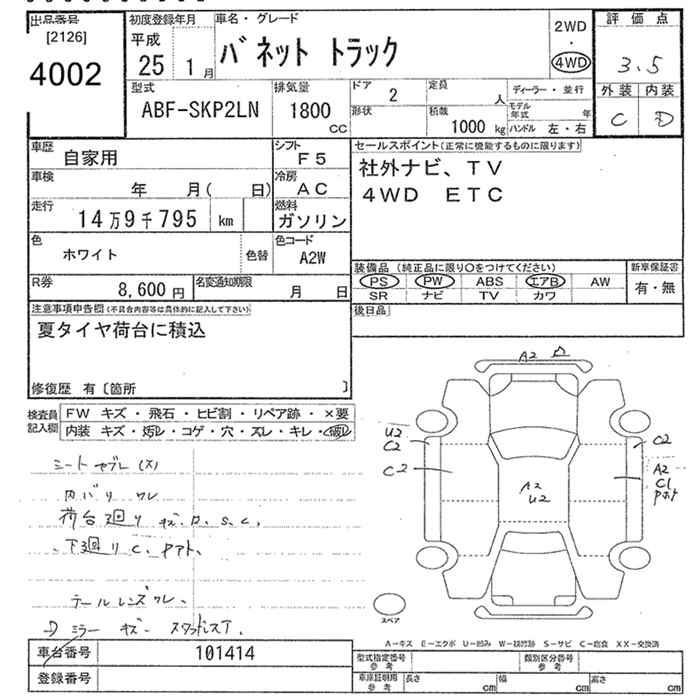 出品番号
[2126]
4002
初度登録年月
平成
25 1月
車名・グレード
バネット トラック
2WD
・
4WD
評価点
3.5
外装 内装
C D
型式
ABF-SKP2LN
排気量
1800
CC
ドア 2
形状
定員 人
積載
1000 kg
ディーラー・並行
モデル年式 年
ハンドル 左・右
車歴 自家用
シフト F5
車検 年 月( 日)
冷房 AC
走行 14万9千795 km
燃料 ガソリン
色 ホワイト 色替
色コード A2W
R券 8,600円
名変通知期限 月 日
セールスポイント(正常に機能するものに限ります)
社外ナビ、TV
4WD ETC
装備品 (純正品に限り○をつけてください)
PS PW ABS エアB AW
SR ナビ TV カワ
新車保証書
有・無
後日品
注意事項申告欄(不具合内容等は具体的に記入して下さい)
夏タイヤ荷台に積込
修復歴 有〔箇所 〕
検査員記入欄
FW キズ・飛石・ヒビ割・リペア跡・×要
内装 キズ・汚レ・コゲ・穴・スレ・キレ・破レ
シートヤブレ(X)
内バリ ワレ
荷台廻り キズ.D.S.C.
下廻り C.Pアト、
テールレンズワレ、
ミラー キズ スタッドレスT.
A2
U2
C2
C2
A2
U2
C2
A2
C1
Pアト
スペア
A-キズ E-エクボ U-凹み W-補修跡 S-サビ C-腐食 XX-交換済
車台番号 101414
登録番号
型式指定番号 参考
類別区分番号 参考
車庫証明用 参考
長さ cm 幅 cm 高さ cm